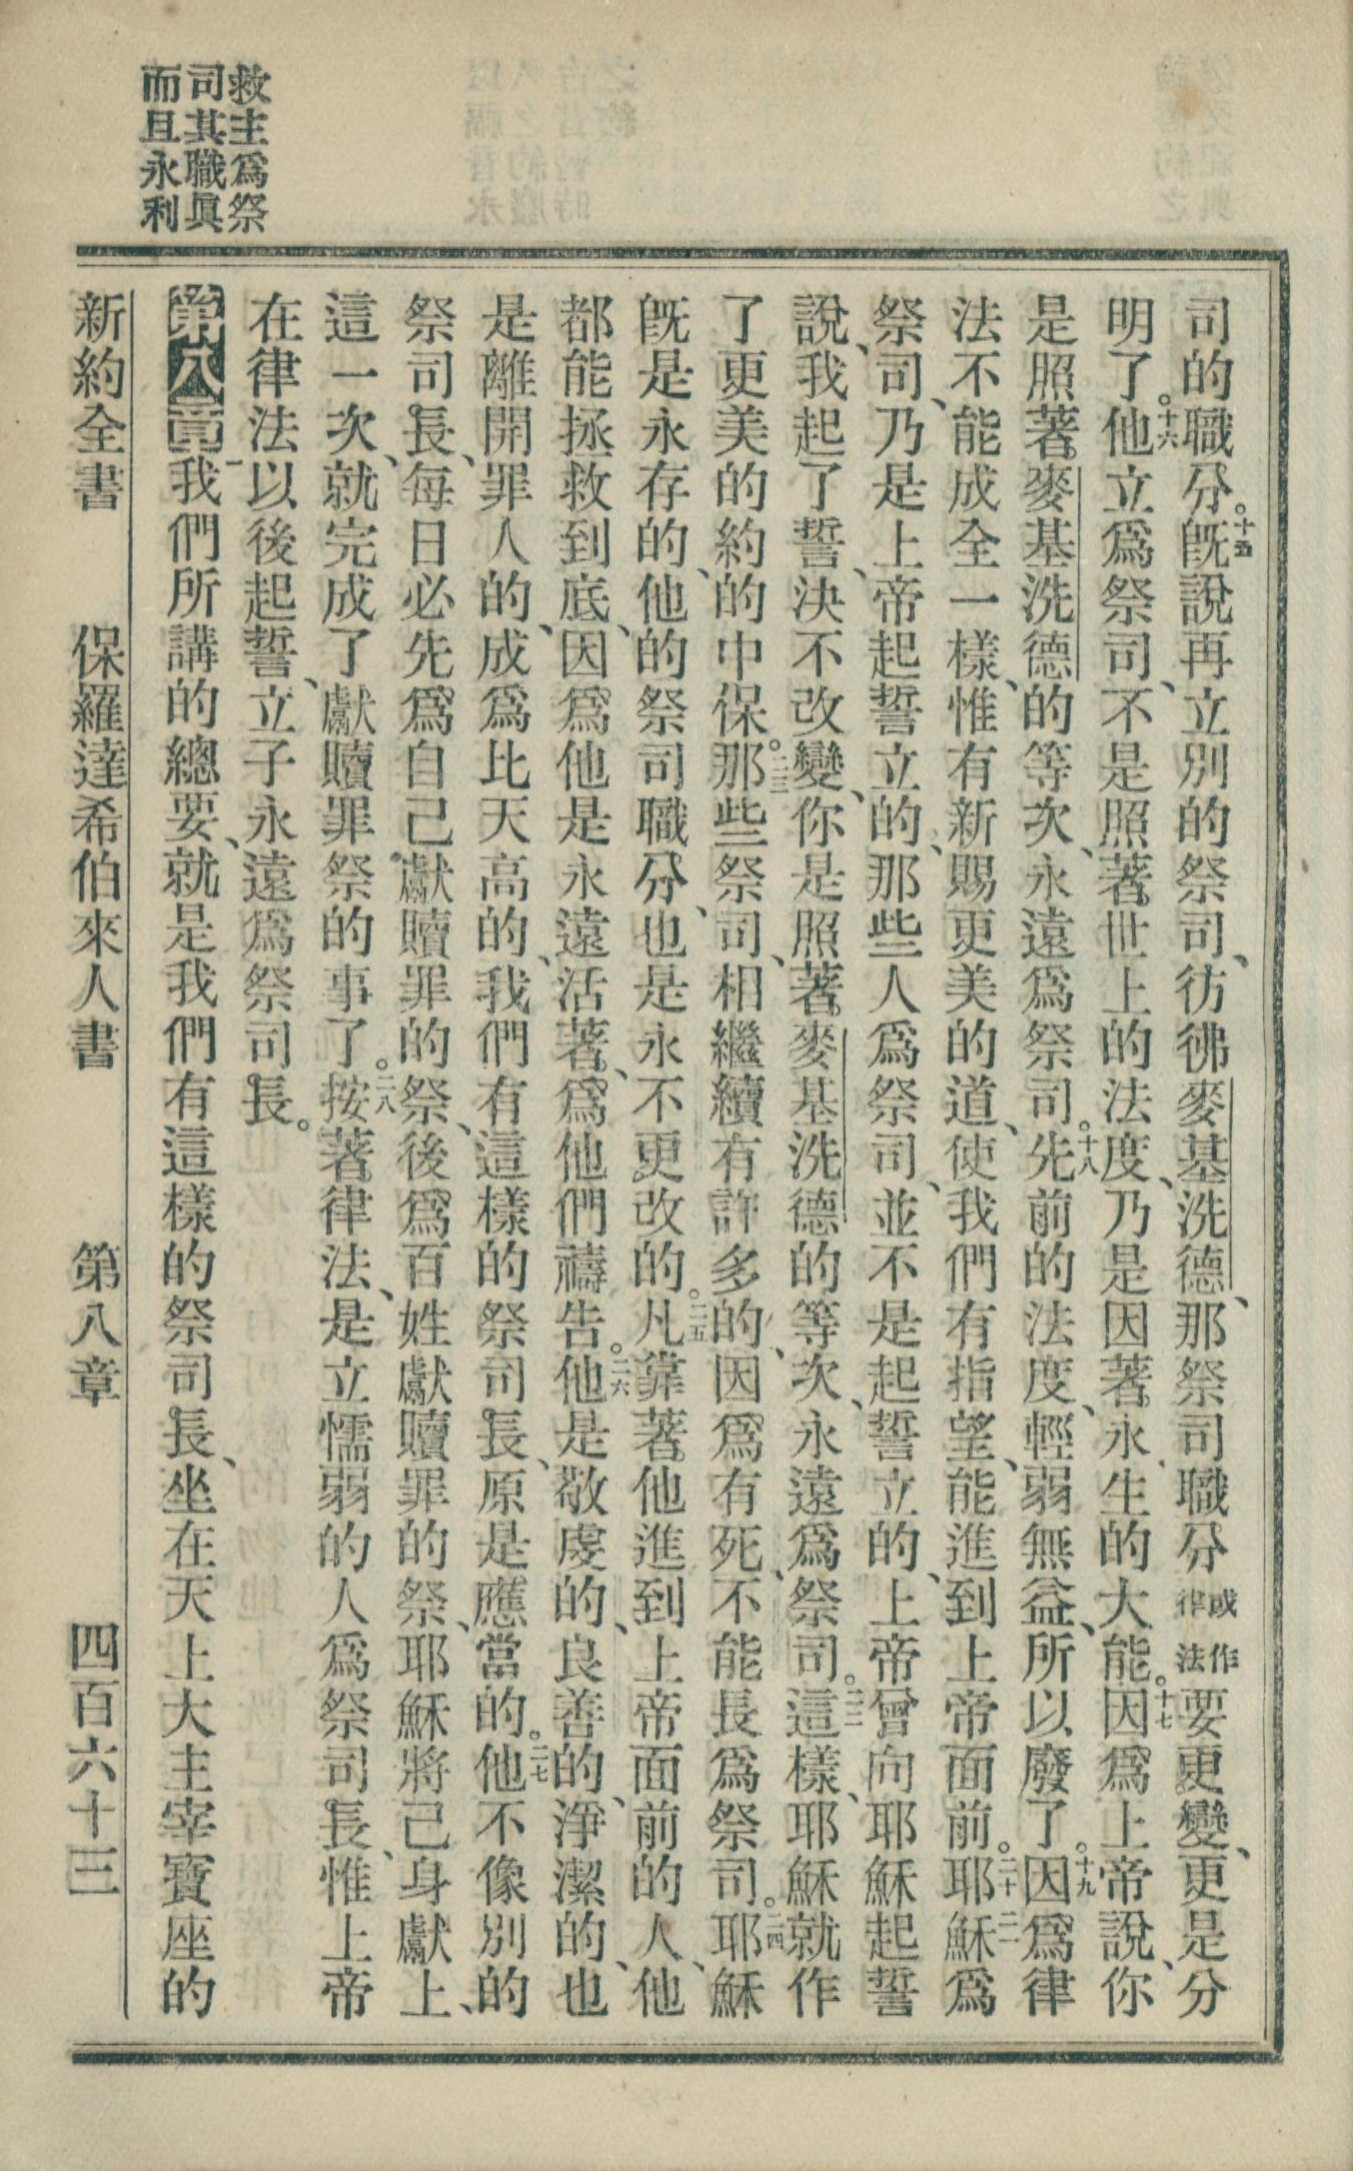 救主爲祭
司其職眞
而且永利
司的職分。十五既說再立別的祭司、彷彿麥基洗德、那祭司職分或作律法要更變、更是分
明了。十六他立爲祭司、不是照著世上的法度、乃是因著永生的大能。十七因爲上帝說、你
是照著麥基洗德的等次、永遠爲祭司。十八先前的法度、輕弱無益、所以廢了。十九因爲律
法不能成全一樣、惟有新賜更美的道、使我們有指望、能進到上帝面前。二十耶穌二一爲
祭司、乃是上帝起誓立的、那些人爲祭司、並不是起誓立的、上帝曾向耶穌起誓
說、我起了誓、決不改變、你是照著麥基洗德的等次、永遠爲祭司。二二這樣、耶穌就作
了更美的約的中保。二三那些祭司、相繼續有許多的、因爲有死、不能長爲祭司。二四耶穌
既是永存的、他的祭司職分、也是永不更改的。二五凡靠著他進到上帝面前的人、他
都能拯救到底、因爲他是永遠活著、爲他們禱告。二六他是敬虔的、良善的、淨潔的、也
是離開罪人的、成爲比天高的、我們有這樣的祭司長、原是應當的。二七他不像別的
祭司長、每日必先爲自己獻贖罪的祭、後爲百姓獻贖罪的祭、耶穌將己身獻上、
這一次、就完成了獻贖罪祭的事了。二八按著律法、是立懦弱的人爲祭司長、惟上帝
在律法以後起誓、立子永遠爲祭司長。
第八章一我們所講的總要、就是我們有這樣的祭司長、坐在天上大主宰寶座的
新約全書　保羅達希伯來人書　第八章　四百六十三